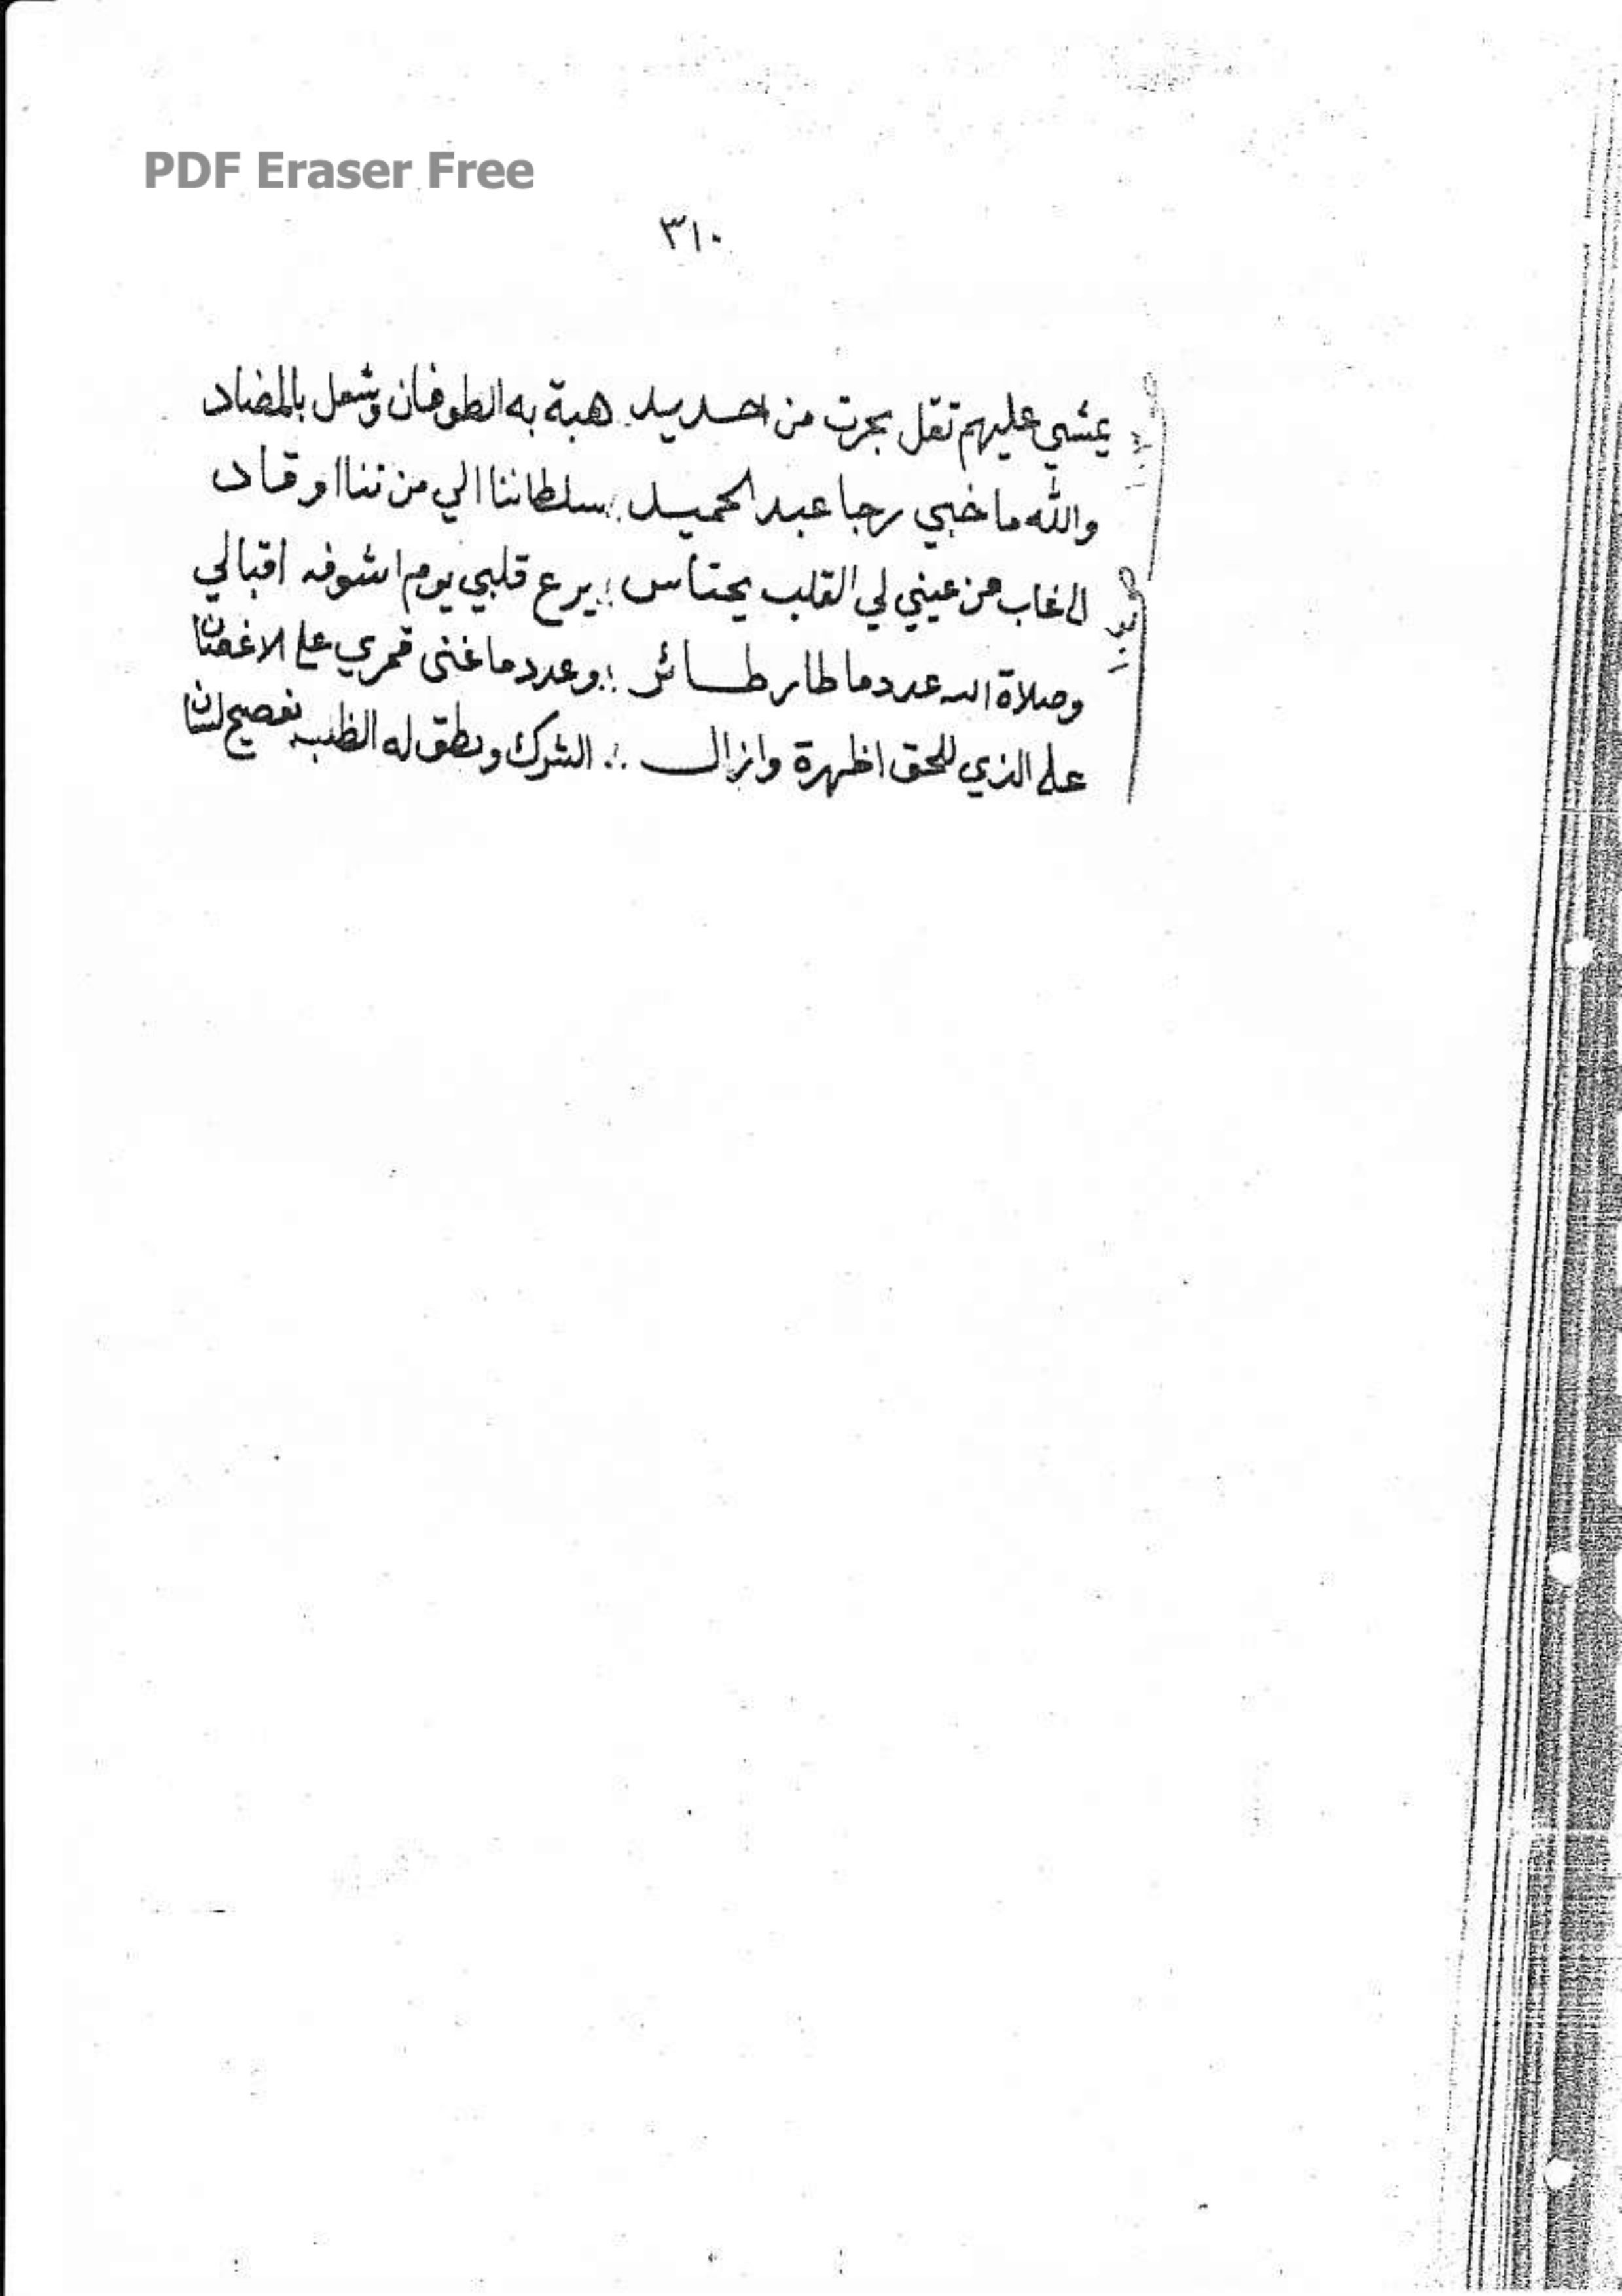 PDF Eraser Free
٣١٠
يمشي عليهم تقل بحرت من احديد هبة به الطوفان وشعل بالمضاد
والله ما خبي رجا عبد الحميد سلطاننا الي من تنا اوقاد
الى غاب من عيني لي القلب يحتاس ∴ يرع قلبي يوم اشوفه اقبالي
وصلاة الله عدد ما طار طائر ∴ وعدد ما غنى قمري على الاغصان
على الذي للحق اظهرة وازال ∴ الشرك ونطق له الظبيه بفصيح لسان